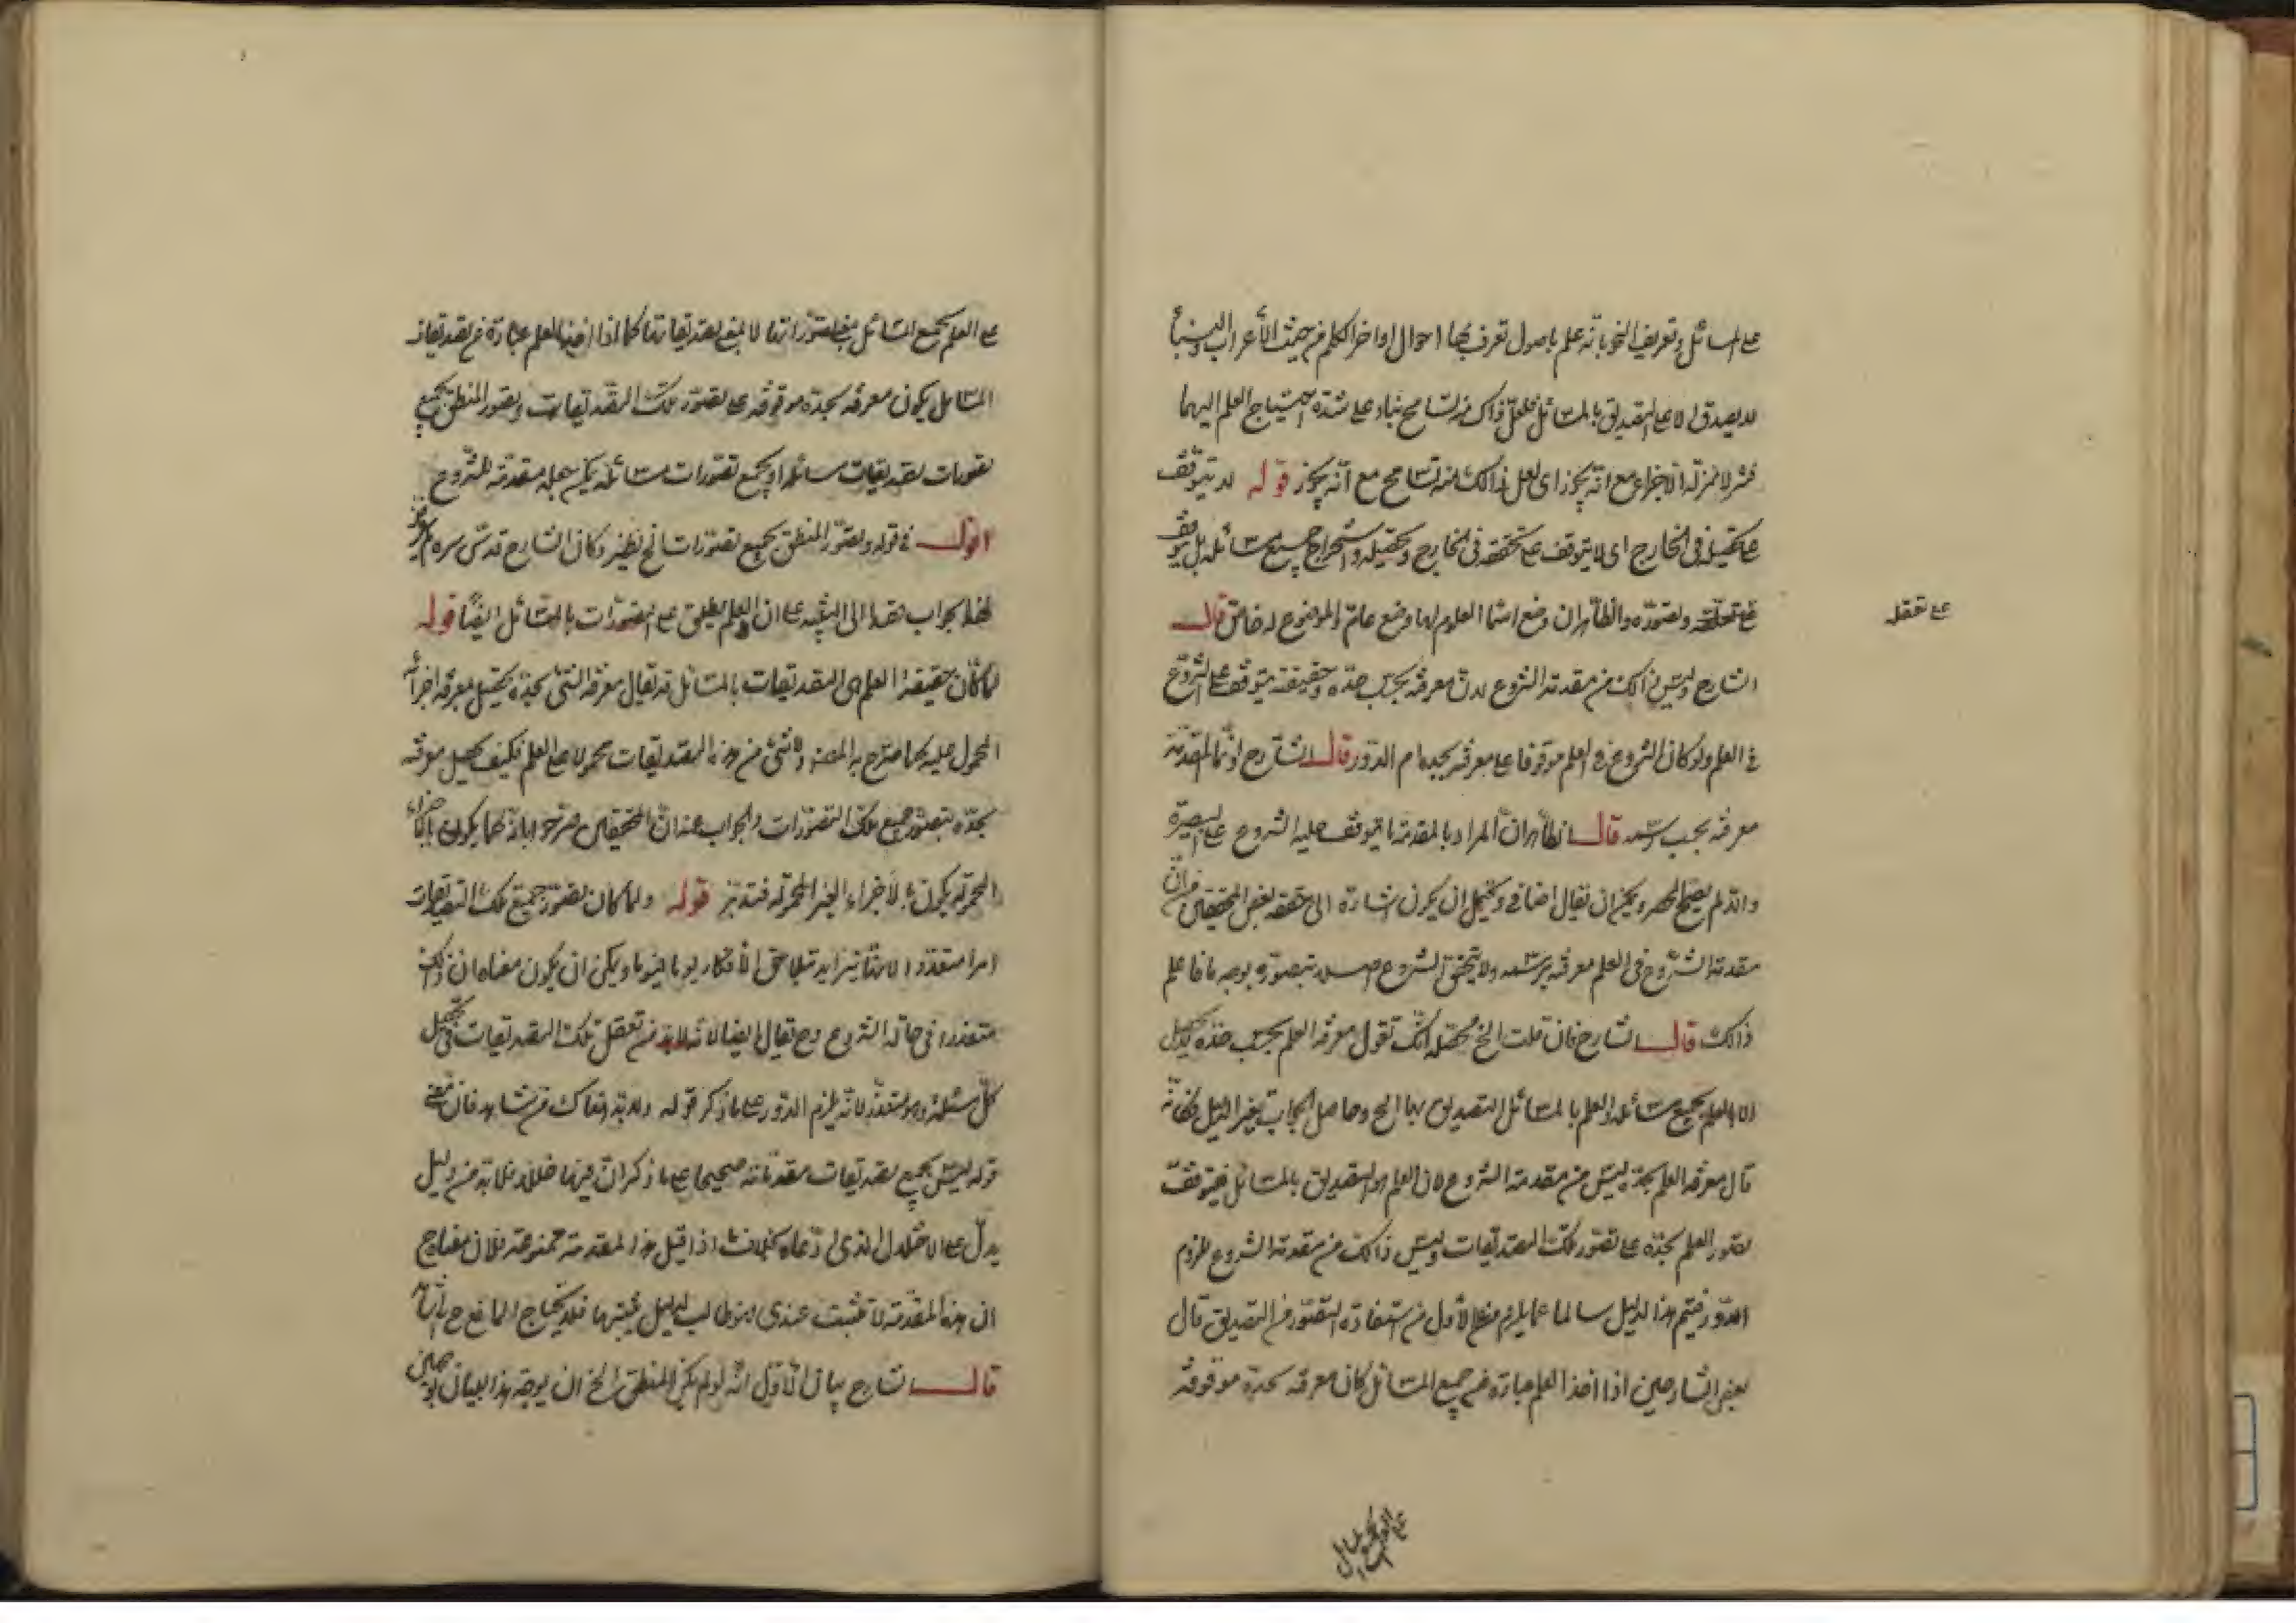 على المسائل وتعريف النحو بانّه علم باصول تعرف بها احوال اواخر الكلم من حيث الأعراب والبناء
لا يصدق الا على التصديق بالمسائل فلعل ذاك من التسامح بناء على شدة احتياج العلم اليهما
فنزلا منزلة الاجزاء مع انه يجوز اى لعل ذالك منه تسامح مع انّه يجوز قوله لا يتوقف
على تحصيله فى الخارج اى لا يتوقف على تحققه فى الخارج وتحصيله واستخراج جميع مسائله بل يتوقف
على تعقله وتصوّره والظاهر ان وضع اسماء العلوم لها وضع عام والموضوع له خاص قال
على تعقل
الشارح وليس ذالك من مقدمة الشروع لان معرفته بحسب حدّه وحقيقته يتوقف على الشروع
فى العلم ولو كان الشروع فى العلم موقوفا على معرفته بحده لزم الدّور قال الشارح وانّما المقدّمة
معرفته بحسب رسمه قال الظاهر انّ المراد بالمقدمة ما يتوقف عليه الشروع على البصيرة
والا لم يصح الحصر ويمكن ان يقال اضافى ويحتمل ان يكون اشارة الى ما حققه بعض المحققين من انّ
مقدمة الشّروع فى العلم معرفته برسمه ولا يتحقق الشروع اصلا بتصوّره بوجه ما فاعلم
ذالك قال الشارح فان قلت الخ محصّله انّك تقول معرفة العلم بحسب حدّه لا يحصل
الا بالعلم بجميع مسائله والعلم بالمسائل التصديق بها الخ وحاصل الجواب تغيير الدليل فكانّه
قال معرفة العلم بحدّه ليس من مقدمة الشروع لان العلم هو التصديق بالمسائل فيتوقف
تصور العلم بحدّه على تصوّر تلك التصديقات وليس ذالك من مقدمة الشروع للزوم
الدّور فيتم هذا الدليل سالما عما يلزم من الأول من استفادة التصوّر من التصديق قال
بعض الشارحين اذا اخذ العلم عبارة عن جميع المسائل كان معرفته بحدّه موقوفة
على العلم بجميع المسائل
على العلم بجميع المسائل بمعنى تصوّراتها لا بمعنى تصديقاتها كما اذا اخذ العلم عبارة عن تصديقات
المسائل يكون معرفته بحدّه موقوفة على تصوّر تلك التصديقات وتصور المنطق بجميع
تصورات تصديقات مسائله او بجميع تصوّرات مسائله يمكن جعله مقدمة للشّروع
اقول فى قوله وتصوّر المنطق بجميع تصوّرات الخ نظير وكان الشارح قدّس سره
لهذا الجواب قصدا الى التنبيه على ان العلم يطلق على التصوّرات بالمسائل ايضًا قوله
لما كان حقيقة العلم هى التصديقات بالمسائل قد يقال معرفة الشئ بحدّه تحصيل بمعرفة اجزائه
المحمولة عليه كما صرّح به المصنف ولا شئ من هذه التصديقات محمولا على العلم فكيف تحصيل معرفته
بحدّه بتصوّر جميع تلك التصوّرات والجواب عنه انّ المحققين صرّحوا بانّه كما يكون بالأجزاء
المحمولة يكون بالأجزاء الغير المحمولة فتدبّر قوله ولما كان تصوّر جميع تلك التصديقات
امرا متعذّرا لانّها تتزايد بتلاحق الأفكار يوما فيوما ويمكن ان يكون معناه ان ذلك
متعذرا فى حالة الشروع وح يقال ايضا لانّه لا بدّ من تعقل تلك التصديقات فى تحصيل
كلّ مسئلة وهو متعذّر لانّه يلزم الدّور على ما ذكر قوله ولا بدّ هناك من شاهد فان معنى
قوله ليس بجميع تصديقات مقدماته صحيحا على ما ذكر انّ فيها خللا فلا بدّ من دليل
يدلّ على الاختلال الذى ادّعاه بخلاف ما اذا قيل هذه المقدمة ممنوعة فلان معناه
ان هذه المقدّمة لا تثبت عندى وهو طالب لدليل يثبتها فلا يحتاج المانع ح الى شاهد
قال الشارح بيان الأوّل انّه لو لم يكن المنطق الخ ان يوجّه هذا البيان بوجهين